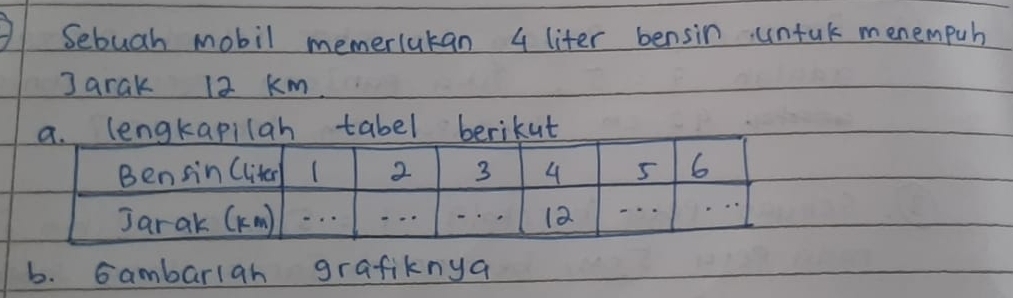 Sebuah mobil memerlukan 4 liter bensin untuk menempuh
Jarak 12 km.
a. lengkapilah tabel berikut
Bensin (liter) 1 2 3 4 5 6
Jarak (km) ... ... ... 12 ... ...
b. Gambarlah grafiknya